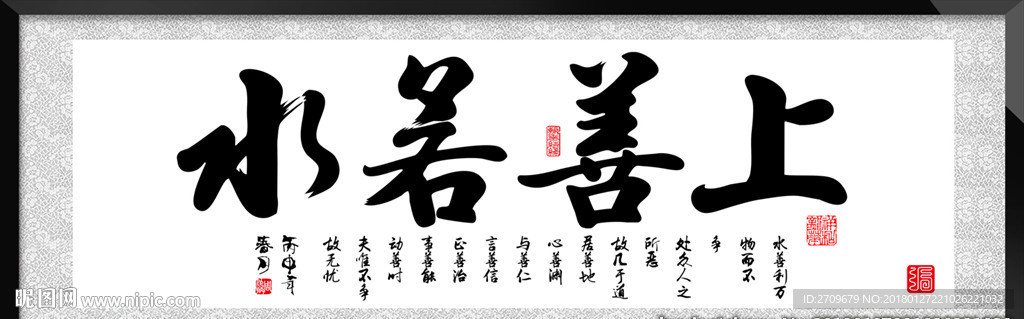 上善若水
水善利万
物而不
争
处众人之
所恶
故几于道
居善地
心善渊
与善仁
言善信
正善治
事善能
动善时
夫唯不争
故无忧
丙申年
春月
昵图网 www.nipic.com
ID:2709679 NO:20180127221026221032